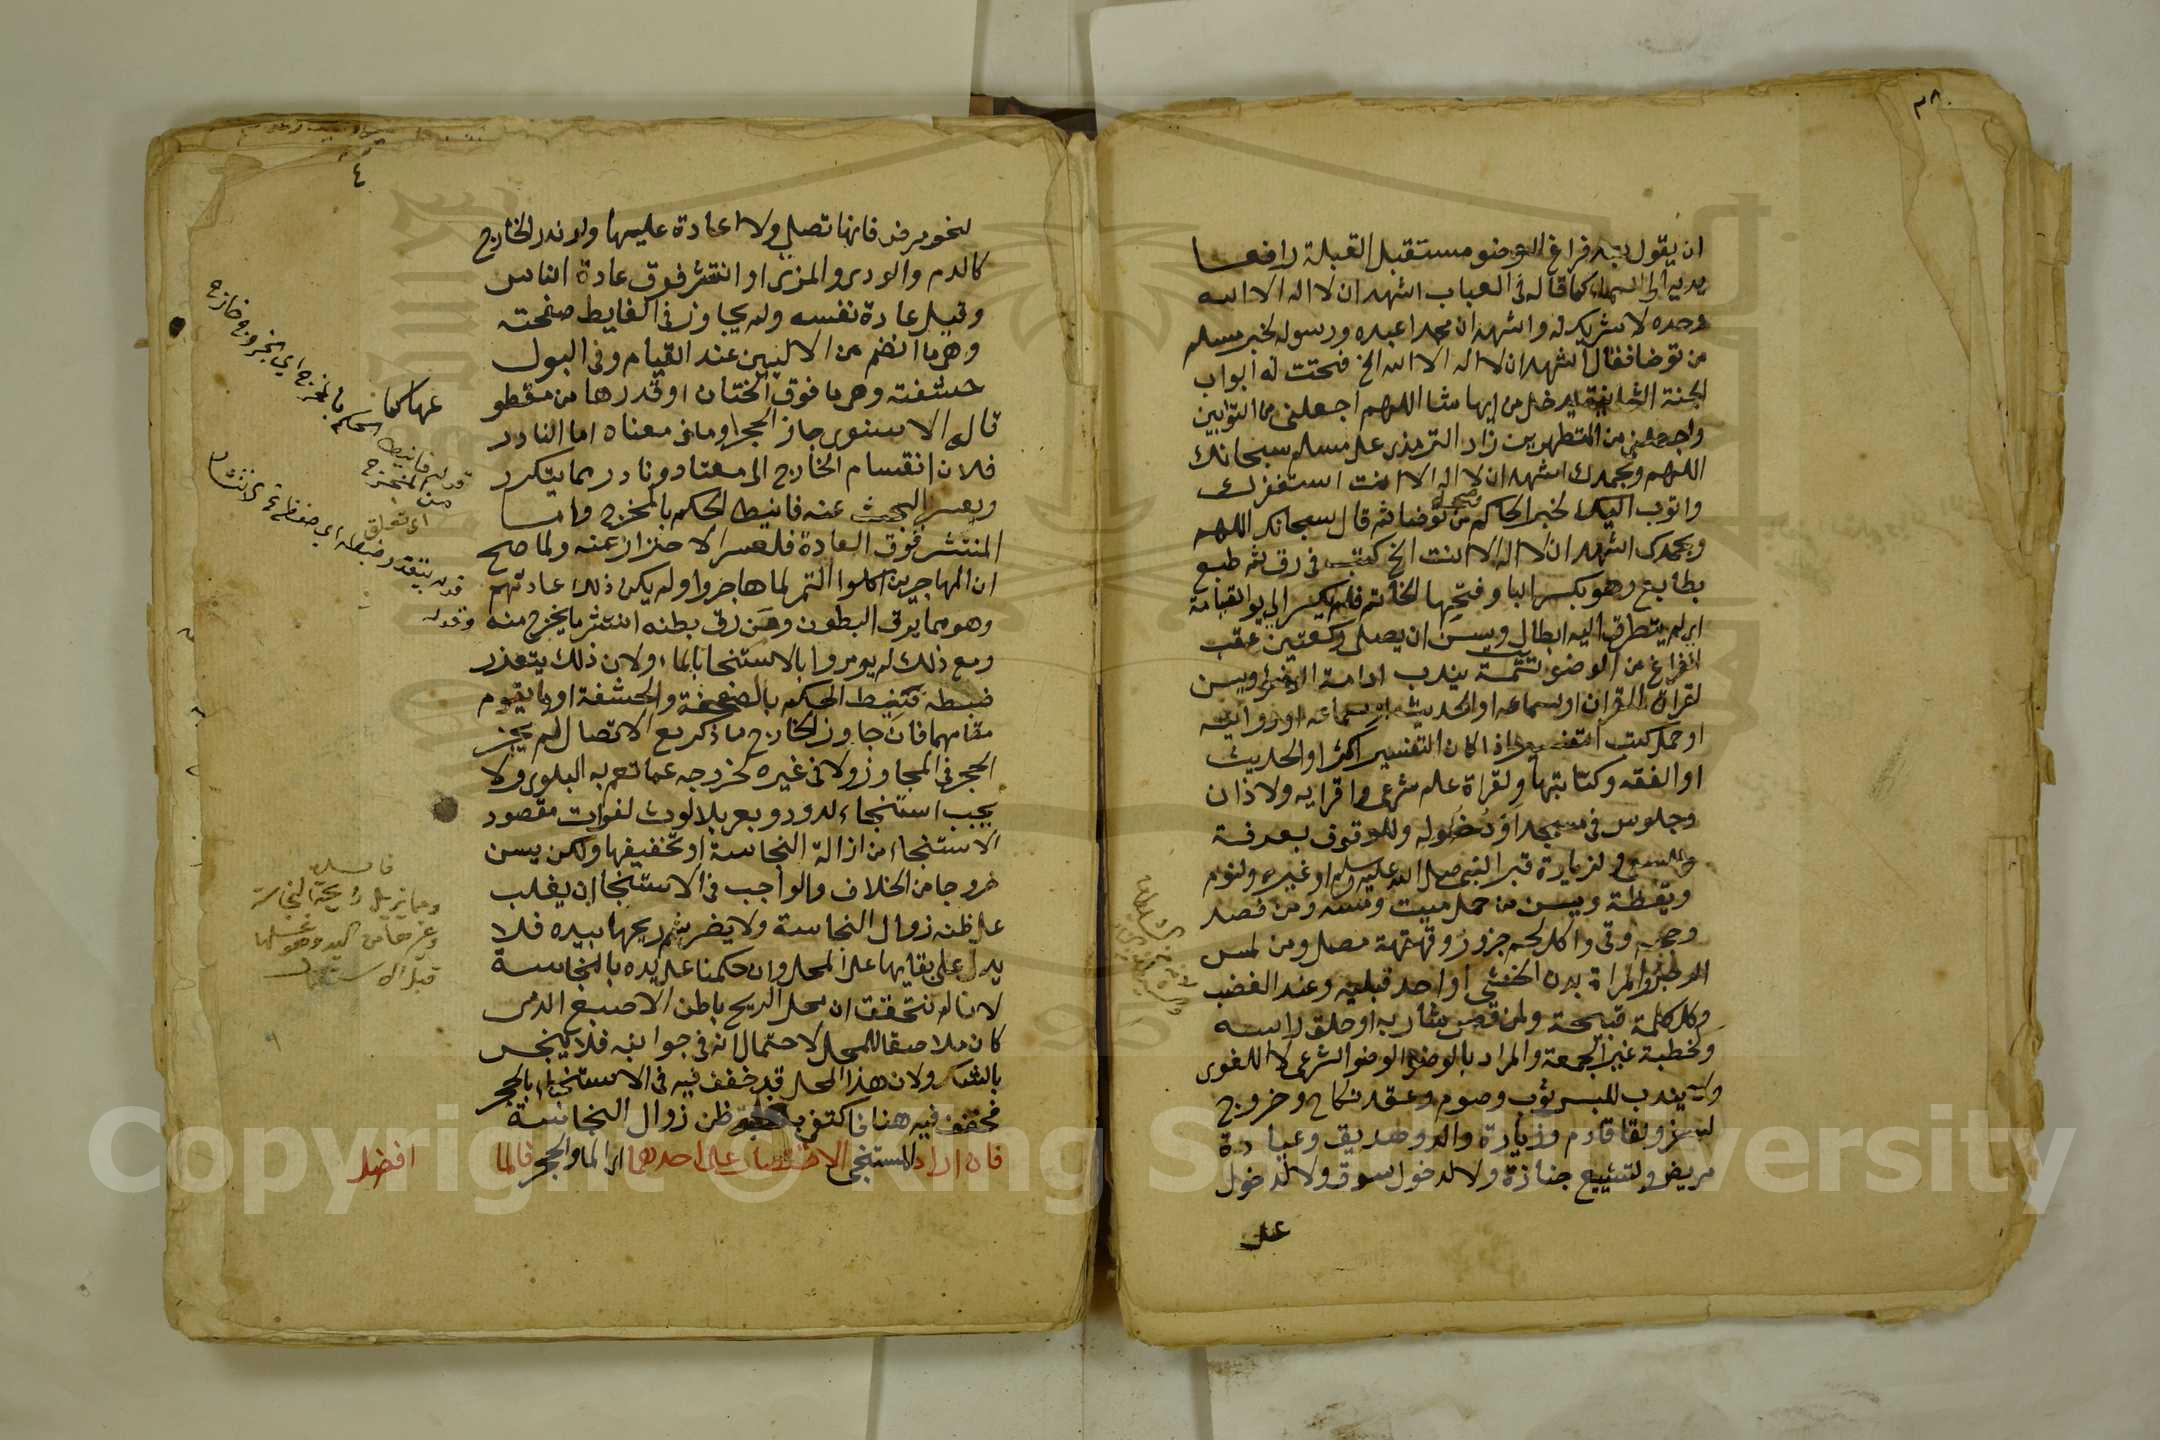 ان يقول بعد فراغ الوضو مستقبل القبلة رافعا
يديه الى السماء كما قاله في العباب اشهد ان لا اله الا الله
وحده لا شريك له واشهد ان محمدا عبده ورسوله لخبر مسلم
من توضا فقال اشهد ان لا اله الا الله الخ فتحت له ابواب
الجنة الثمانية يدخل من ايها شا اللهم اجعلني من التوابين
واجعلني من المتطهرين زاد الترمذي على مسلم سبحانك
اللهم وبحمدك اشهد ان لا اله الا انت استغفرك
واتوب اليك لخبر الحاكم وصححه من توضا ثم قال سبحانك اللهم
وبحمدك اشهد ان لا اله الا انت الخ كتب في رق ثم طبع
بطابع وهو بكسر البا وفتحها الخاتم فلم يكسر الى يوم القيامة
اي لم يتطرق اليه ابطال ويسن ان يصلي ركعتين عقب
الفراغ من الوضو تتمة يندب ادامة الوضو ويسن
لقراة القران او سماعه او الحديث او سماعه او روايته
او حمل كتب التفسير اذا كان التفسير اكثر او الحديث
او الفقه وكتابتها ولقراة علم شرعي واقرايه ولاذان
وجلوس في مسجد او دخوله وللوقوف بعرفة
وللسعي ولزيارة قبر النبي صلى الله عليه وسلم او غيره ولنوم
ويقظة ويسن من حمل ميت ومسه ومن فصد
وحجم وقي واكل لحم جزور وقهقهة مصل ومن لمس
الرجل والمراة بدن الخنثى او احد قبليه وعند الغضب
وكل كلمة قبيحة ولمن قص شاربه او حلق راسه
ولخطبة غير الجمعة والمراد بالوضو الوضو الشرعي لا اللغوي
ولا يندب للبس ثوب وصوم وعقد نكاح وخروج
لسفر ولقا قادم وزيارة والد وصديق وعيادة
مريض ولتشييع جنازة ولا لدخول سوق ولا لدخول
على
لنحو مرض فانها تصلي ولا اعادة عليها ولو ندر الخارج
كالدم والودي والمذي او انتشر فوق عادة الناس
وقيل عادة نفسه ولم يجاوز في الغايط صفحته
وهي ما انضم من الاليين عند القيام وفي البول
حشفته وهي ما فوق الختان او قدرها من مقطوع
قاله الاسنوي جاز الحجر وما في معناه اما النادر
فلان انقسام الخارج الى معتاد ونادر مما يتكرر
ويعسر البحث عنه فانيط الحكم بالمخرج واما
المنتشر فوق العادة فلعسر الاحتراز عنه ولما صح
ان المهاجرين اكلوا التمر لما هاجروا ولم يكن ذلك عادتهم
وهو مما يرق البطون ومن رق بطنه انتشر ما يخرج منه
ومع ذلك لم يومروا بالاستنجا بالماء ولان ذلك يتعذر
ضبطه فنيط الحكم بالصفحة والحشفة او ما يقوم
مقامهما فان جاوز الخارج ما ذكر مع الاتصال لم يجز
الحجر في المجاوز ولا في غيره لخروجه عما تعم به البلوى ولا
يجب استنجاء لدود وبعر بلا لوث لفوات مقصود
الاستنجاء من ازالة النجاسة او تخفيفها ولكن يسن
خروجا من الخلاف والواجب في الاستنجا ان يغلب
على ظنه زوال النجاسة ولا يضر شم ريحها بيده فلا
يدل على بقايها على المحل وان حكمنا على يده بالنجاسة
لانا لم نتحقق ان محل الريح باطن الاصبع الذي
كان ملاصقا للمحل لاحتمال انه في جوانبه فلا ينجس
بالشك ولان هذا المحل قد خفف فيه في الاستنجا بالحجر
فخفف فيه هنا فاكتفي بغلبة ظن زوال النجاسة
فان اراد المستنجي الاقتصار على احدهما اي الما والحجر فالما
افضل
قوله فانيط
قوله يتعذر ضبطه اي
وقوله
ومما يزيل رايحة النجاسة
وغيرها من اليد
قبل الاستنجا